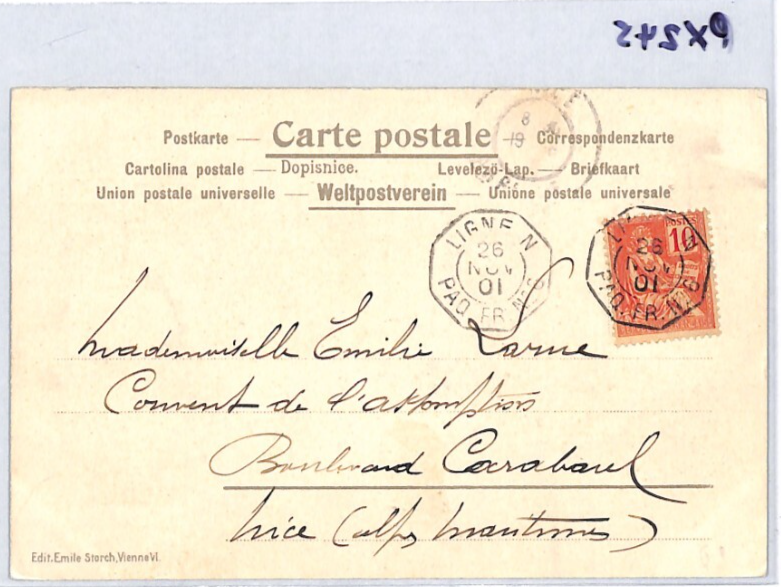 PX545
Postkarte — Carte postale — Correspondenzkarte
Cartolina postale — Dopisnice. Levelezö-Lap. — Briefkaart
Union postale universelle — Weltpostverein — Unione postale universale
NICE
8
19
LIGNE N
26
NOV
01
PAQ. FR. Nº 8
POSTES
10
LIGNE N
26
NOV
01
PAQ. FR. Nº 8
Mademoiselle Emilie Larue
Couvent de l'assomption
Boulevard Carabacel
Nice (alpes maritimes)
Edit. Emile Storch, Vienne VI.